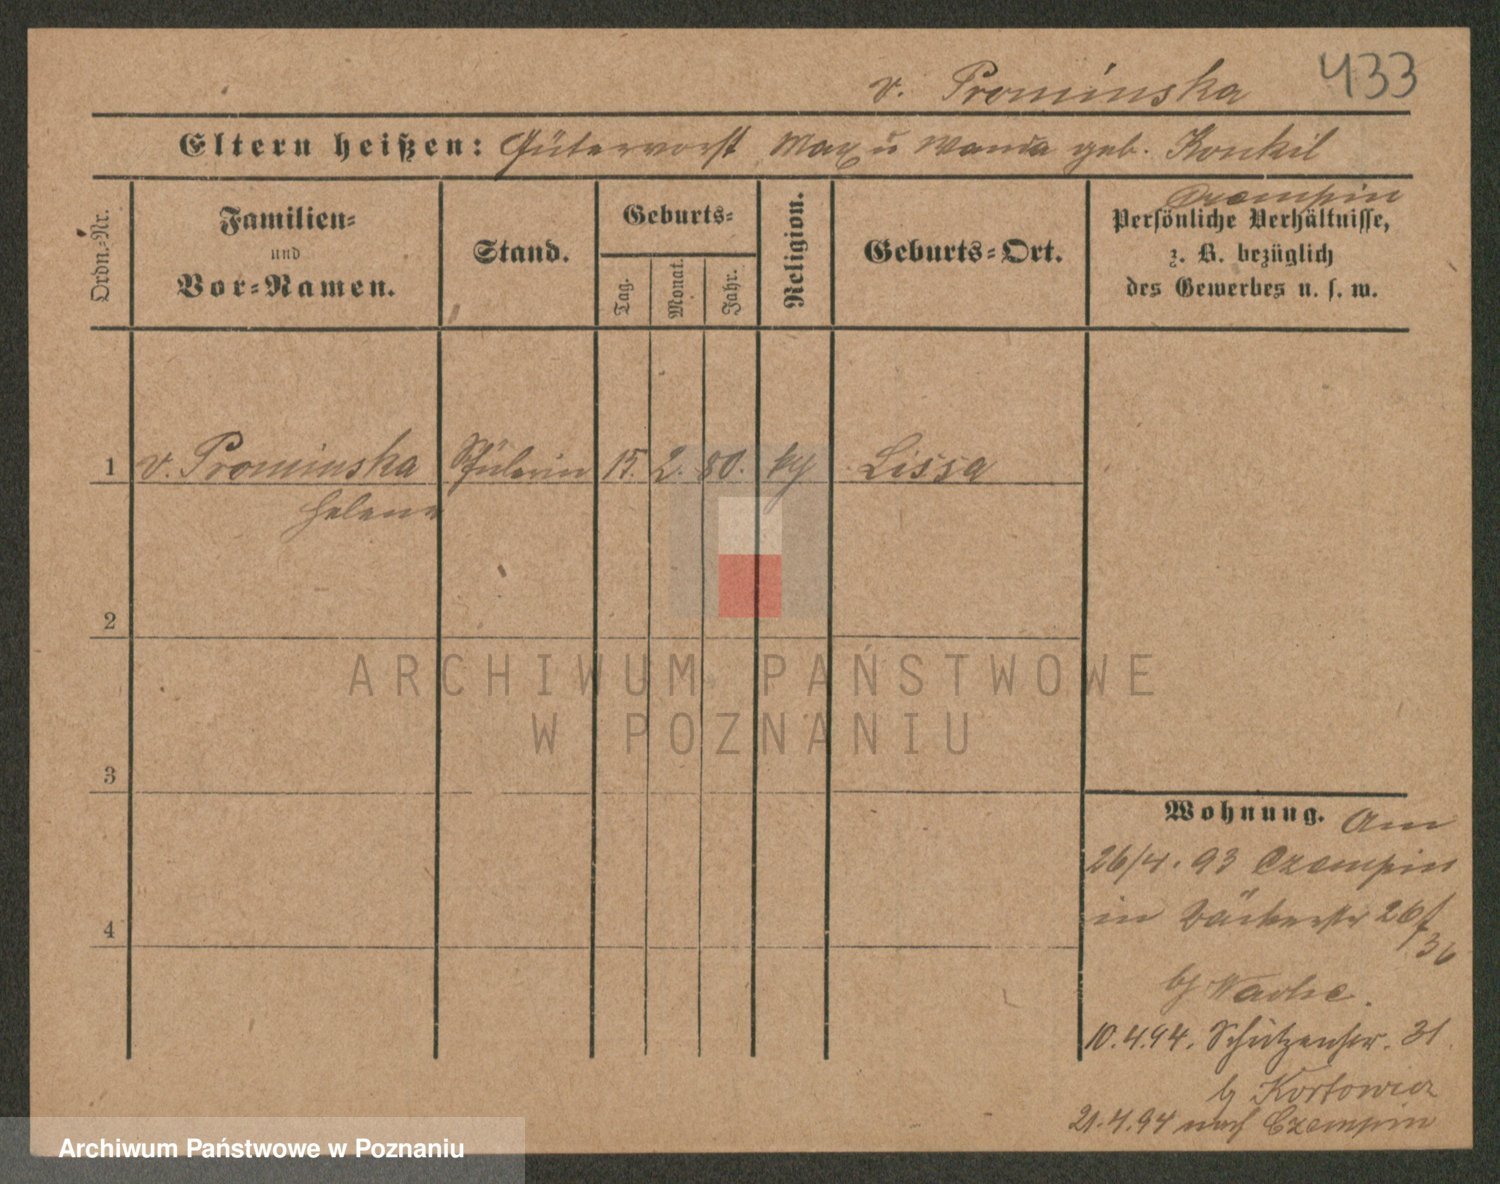 v. Prominska 433
Eltern heißen: Gütervorst Max u Wanda geb. Konkil
Czempin
Ordn.=Nr.
Familien=
und
Vor=Namen.
Stand.
Geburts=
Tag.
Monat.
Jahr.
Religion.
Geburts=Ort.
Persönliche Verhältnisse,
z. B. bezüglich
des Gewerbes u. s. w.
1 v. Prominska Schülerin 15. 2. 80. Lissa
Helena
2
3
4
Wohnung. Am
26/4. 93 Czempin
in Bäckerstr 26/
36
bj
10.4.94. Schützenstr. 31
bj Kortowicz
21.4.94 nach Czempin
ARCHIWUM PAŃSTWOWE
W POZNANIU
Archiwum Państwowe w Poznaniu